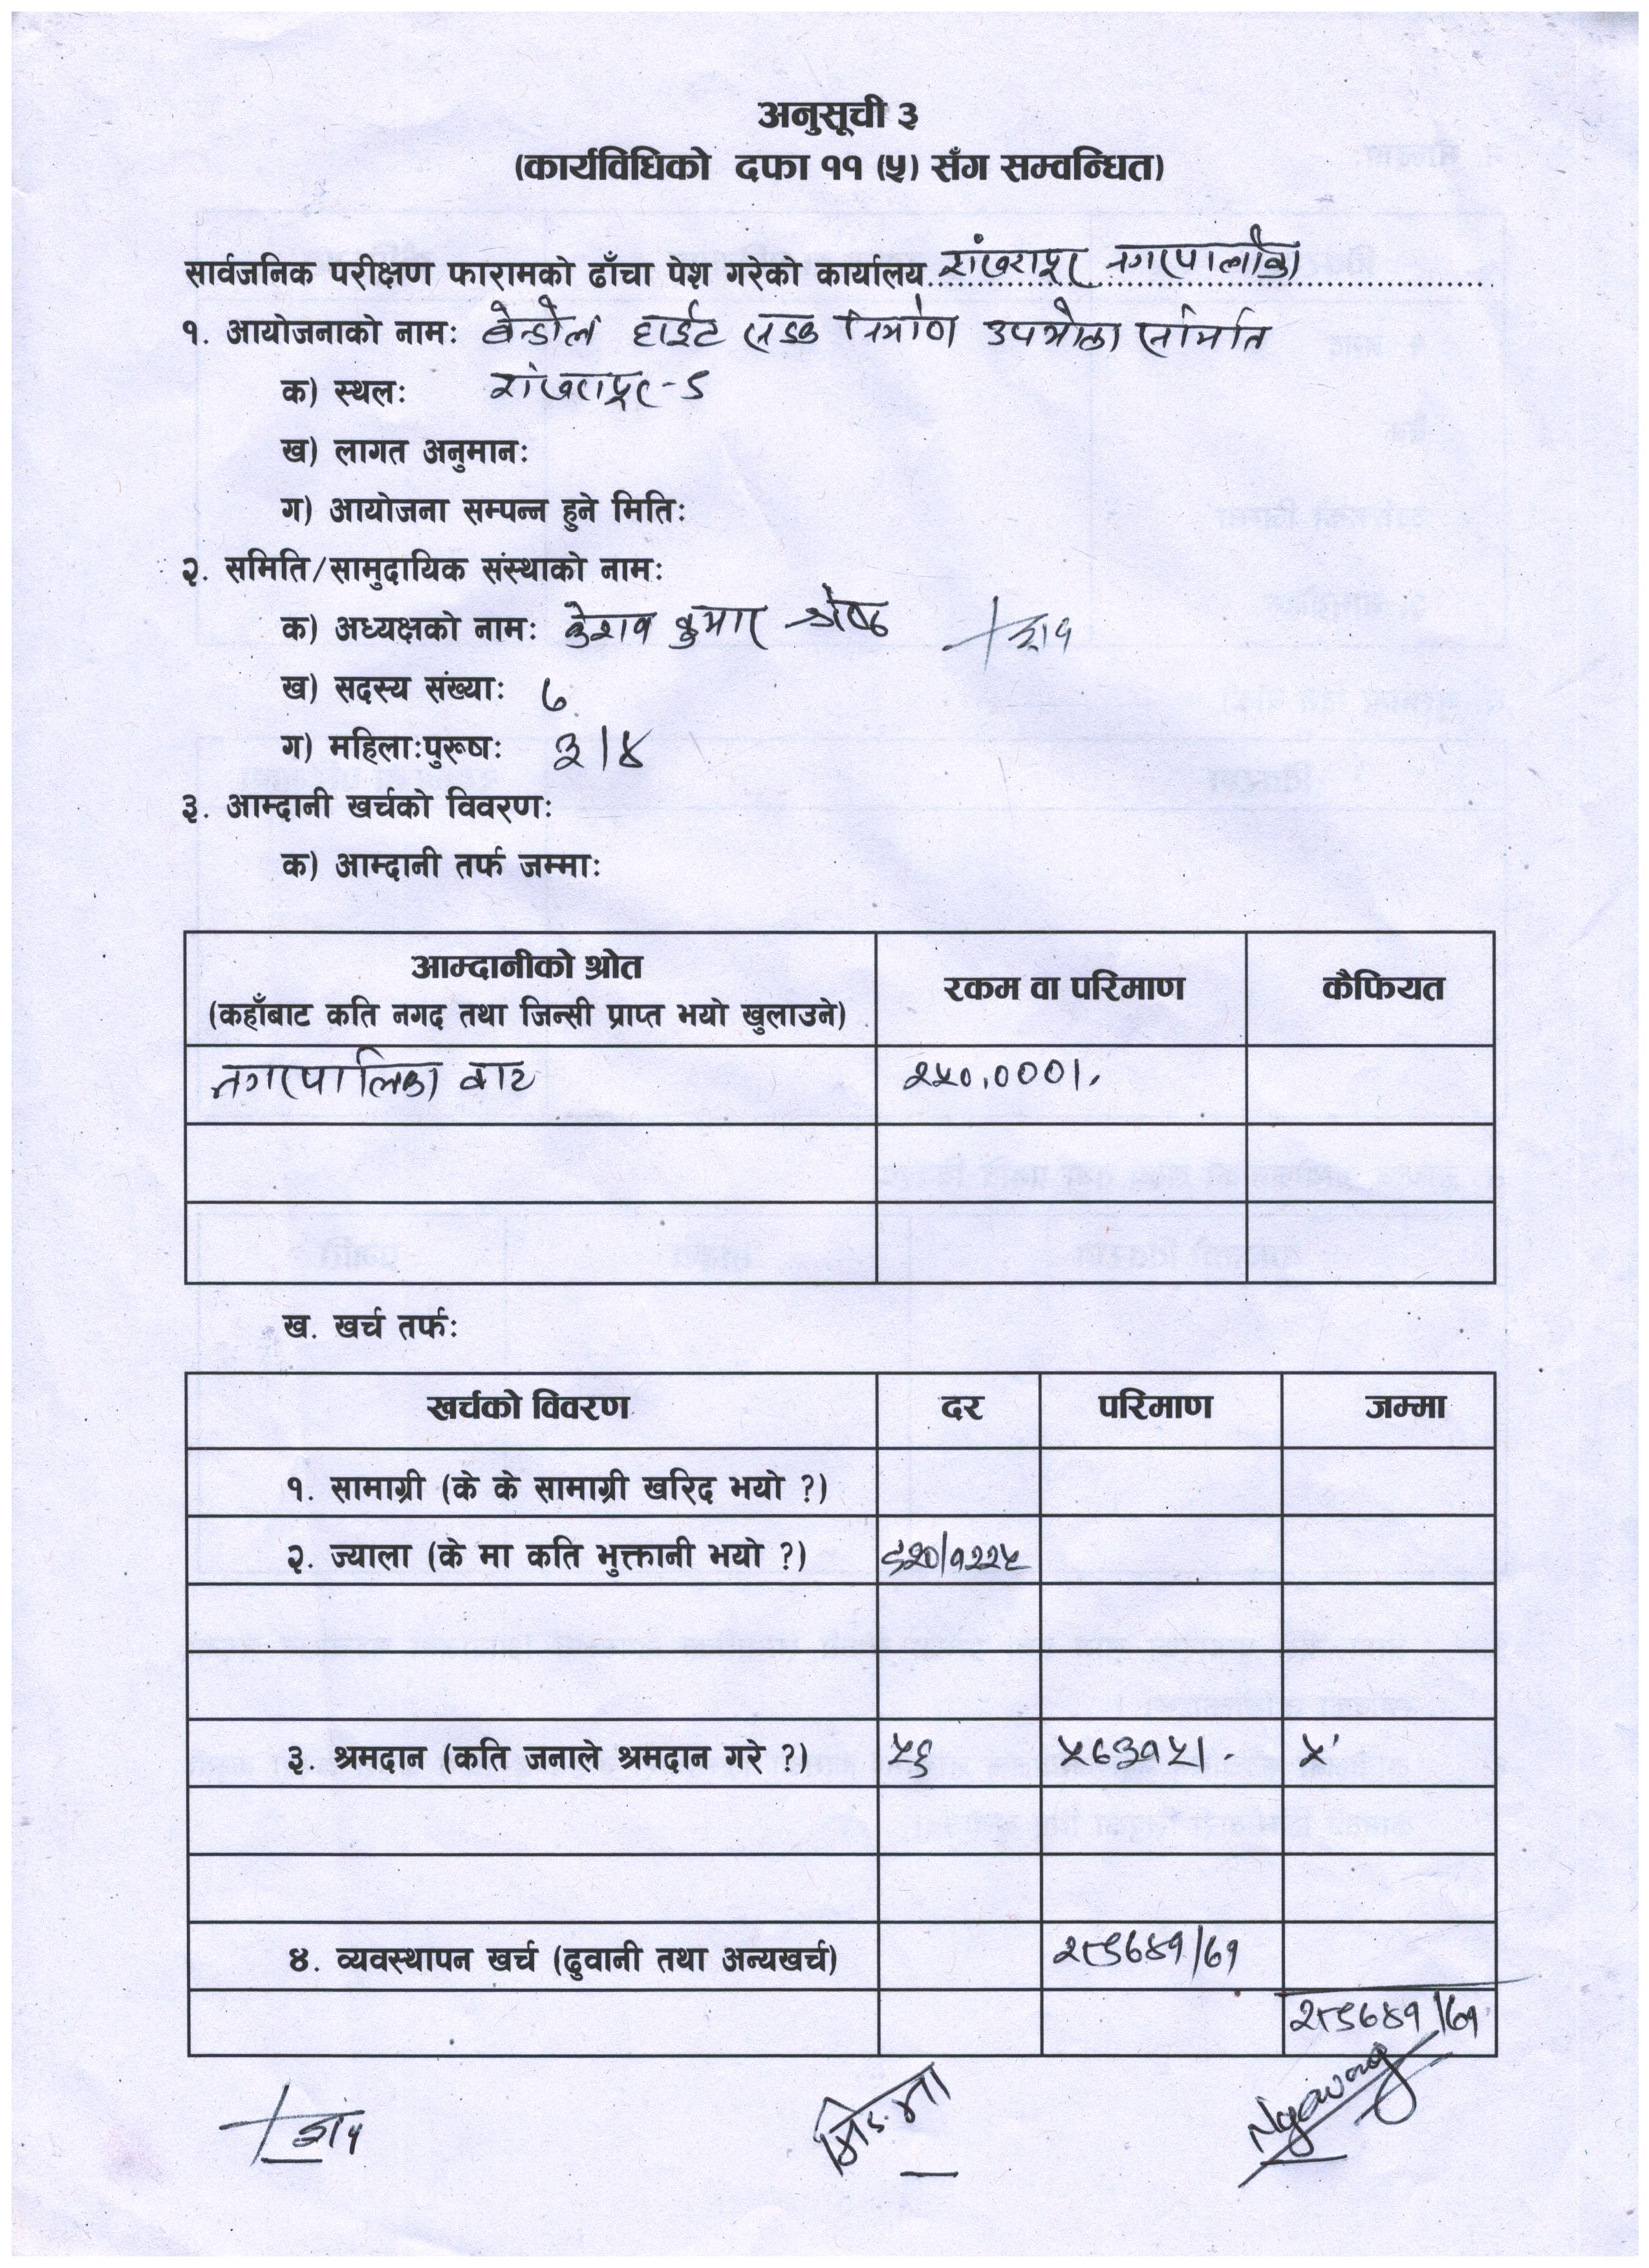 अनुसूची ३
(कार्यविधिको दफा ११ (५) सँग सम्वन्धित)
सार्वजनिक परीक्षण फारामको ढाँचा पेश गरेको कार्यालय शंखरापुर नगरपालीका
१. आयोजनाको नामः हाईट सडक निर्माण उपभोक्ता समिति
क) स्थलः शंखरापुर-८
ख) लागत अनुमानः
ग) आयोजना सम्पन्न हुने मितिः
२. समिति/सामुदायिक संस्थाको नामः
क) अध्यक्षको नामः केशव कुमार श्रेष्ठ
ख) सदस्य संख्याः ७
ग) महिलाःपुरूषः ३।४
३. आम्दानी खर्चको विवरणः
क) आम्दानी तर्फ जम्माः
आम्दानीको श्रोत रकम वा परिमाण कैफियत
(कहाँबाट कति नगद तथा जिन्सी प्राप्त भयो खुलाउने)
नगरपालिका बाट २५०,०००।.
ख. खर्च तर्फः
खर्चको विवरण दर परिमाण जम्मा
१. सामाग्री (के के सामाग्री खरिद भयो ?)
२. ज्याला (के मा कति भुक्तानी भयो ?)
३. श्रमदान (कति जनाले श्रमदान गरे ?) ५६ ५७३१५।-
४. व्यवस्थापन खर्च (ढुवानी तथा अन्यखर्च)
Ngawang